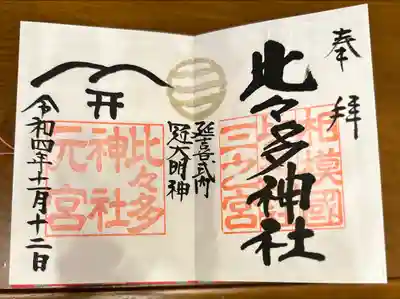 奉拝
相模國
三之宮
比々多神社
延喜式内
冠大明神
比々多
神社
元宮
令和四年十二月十二日